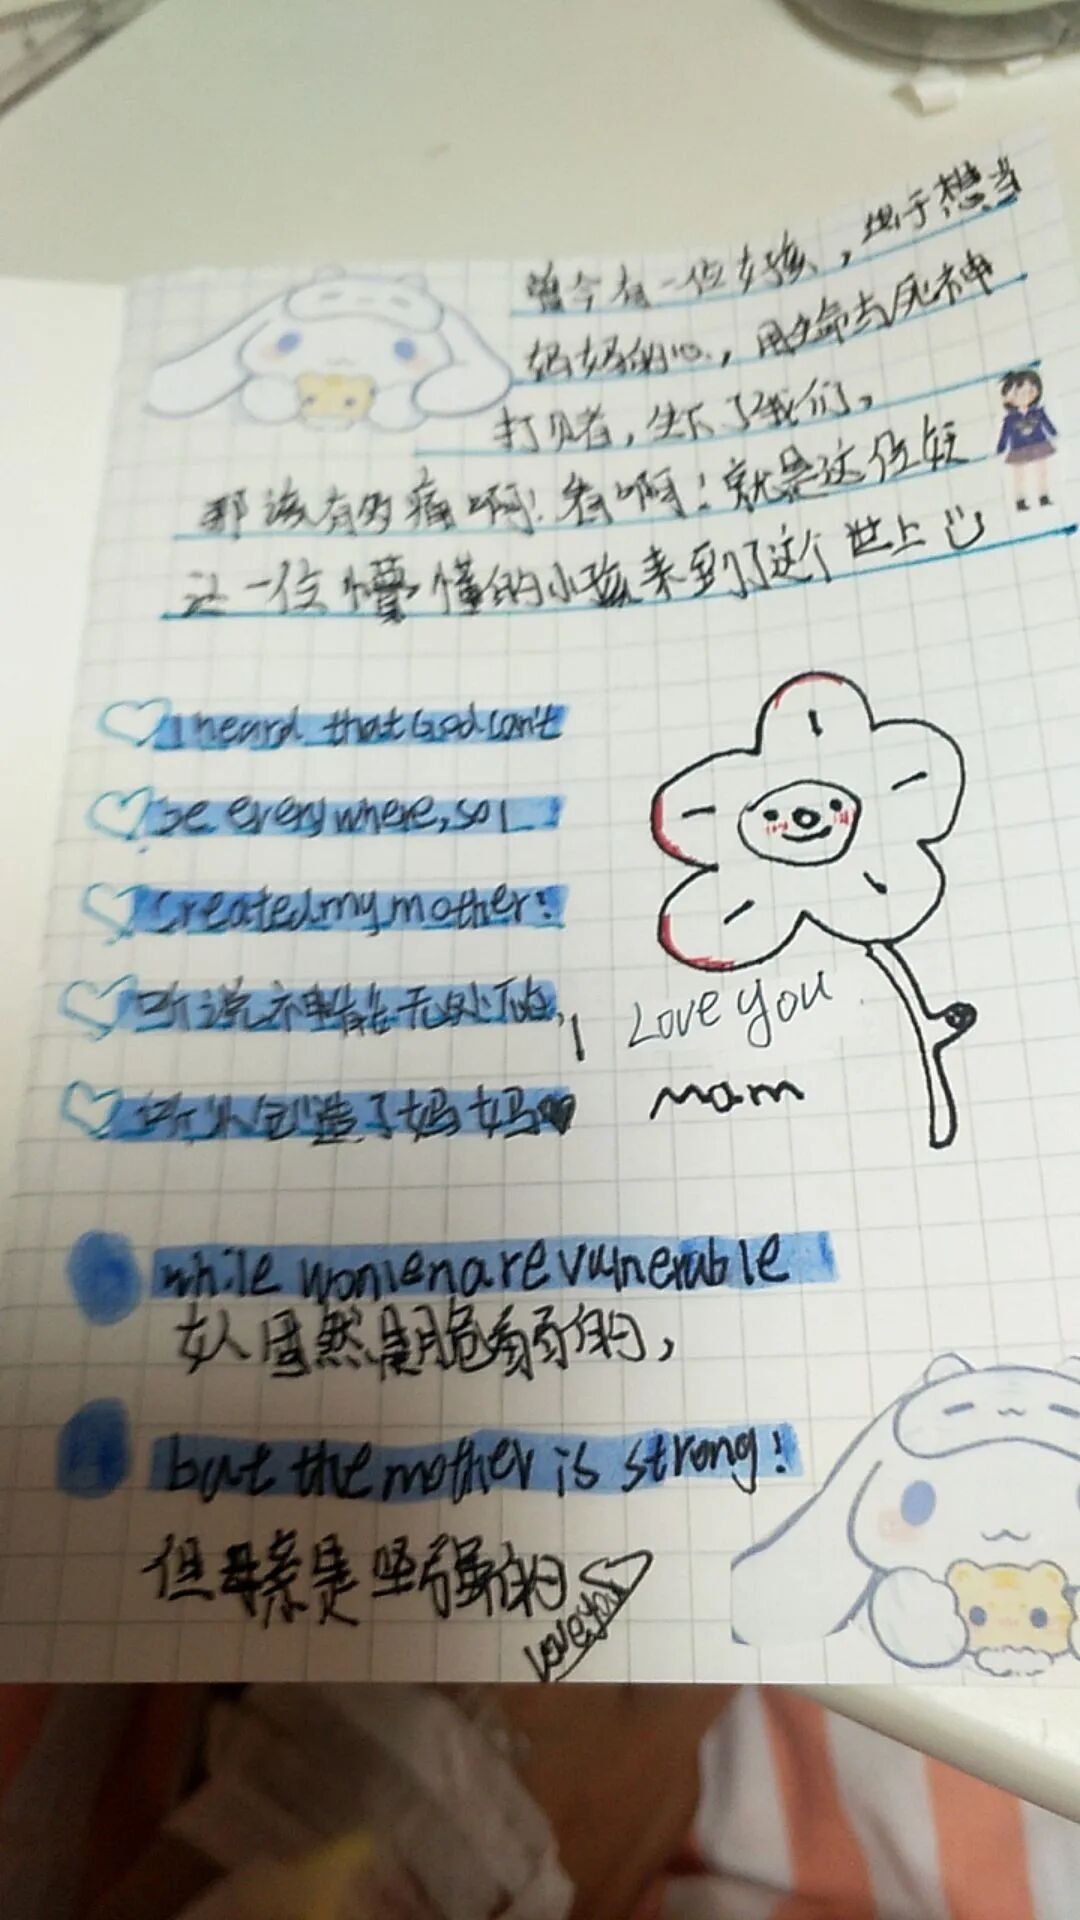 曾今有一位女孩，终于想当
妈妈的心，用生命与死神
打贝者，生下了我们，
那该有多痛啊！看啊！就是这位
让一位懵懂的小孩来到了这个世上
I heard that God can't
be everywhere, so I
Created my mother!
听说神能无处不
所以创造了妈妈
I Love you
mam
while women are vulnerable
女人固然是脆弱的，
but the mother is strong!
但母亲是坚强的
Love you